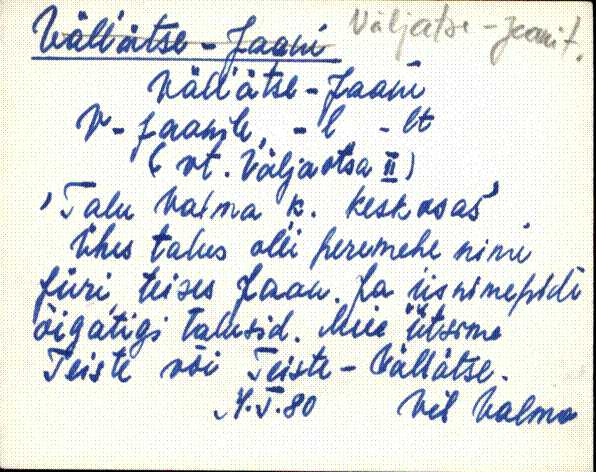 Väll'ätse - Jaani Väljatse - Jaani t.
Väll'ätse - Jaani
V - Jaanile, - l - lt
( vt. Väljaotsa II )
'Talu Valma k. keskosas'
Ühes talus olli peremehe nimi
Jüri, teises Jaan. Ja iis nimepidi
õigatigi talusid. Miie ütsime
Teiste või Teiste - Vällätse.
4. I. 80 Vil Valma